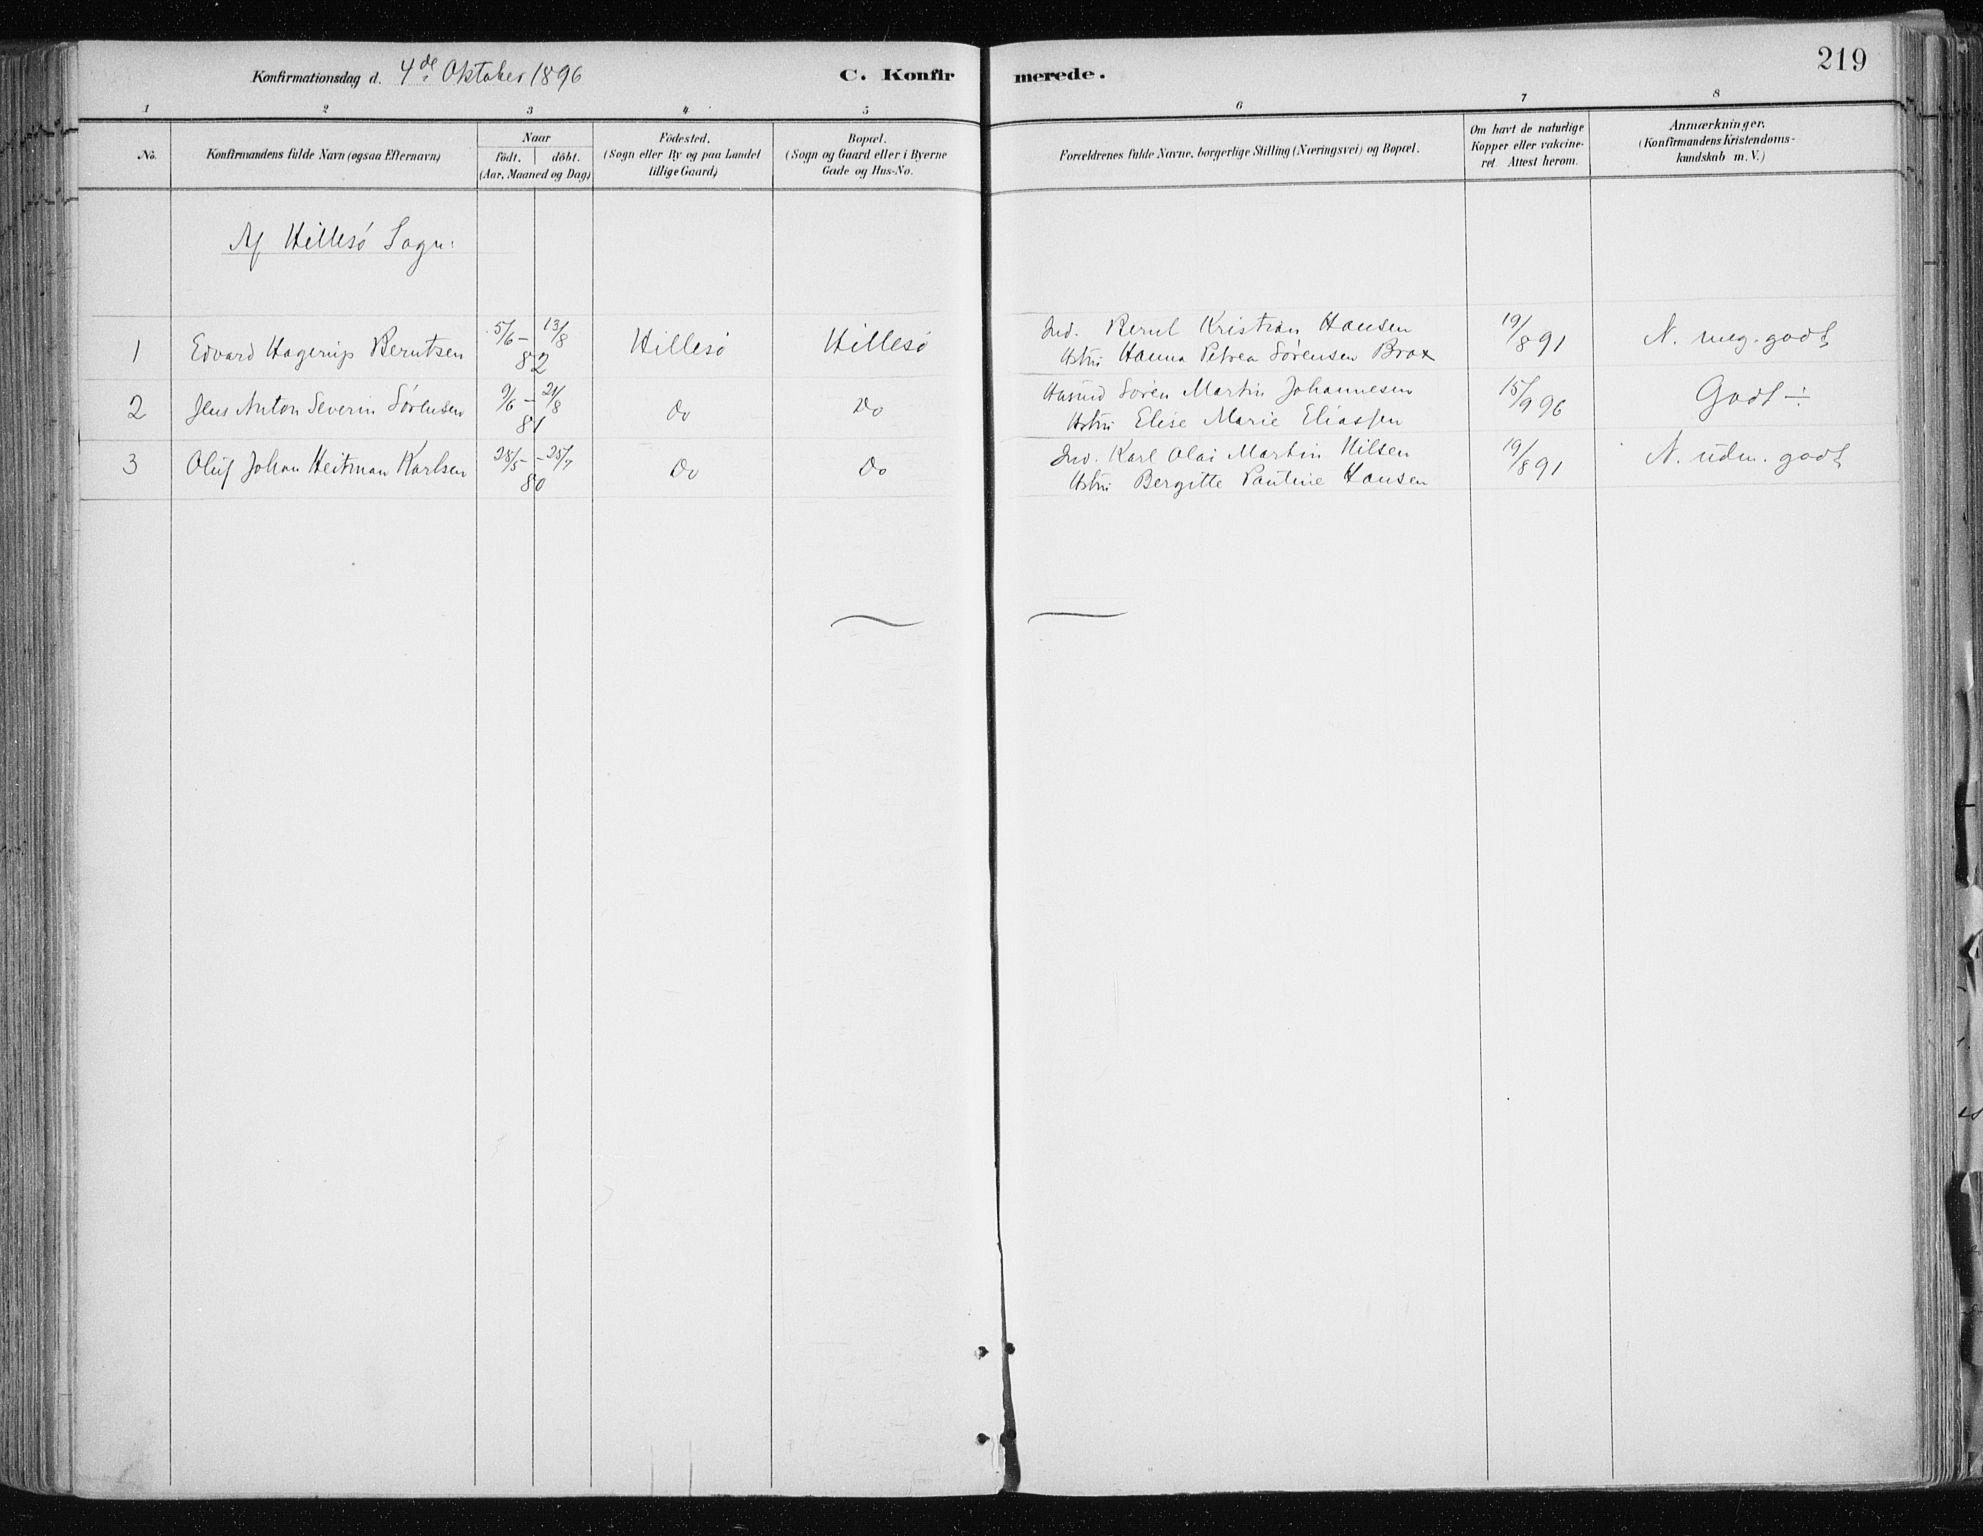 219
Konfirmationsdag d. 4de Oktober 1896
C. Konfirmerede.
1 2 3 4 5 6 7 8
No.
Konfirmandens fulde Navn (ogsaa Efternavn)
Naar
födt. döbt.
(Aar, Maaned og Dag)
Födested.
(Sogn eller By og paa Landet
tillige Gaard)
Bopæl.
(Sogn og Gaard eller i Byerne
Gade og Hus-No.
Forældrenes fulde Navne, borgerlige Stilling (Næringsvei) og Bopæl.
Om havt de naturlige
Kopper eller vakcine-
ret. Attest herom.
Anmærkninger.
(Konfirmandens Kristendoms-
kundskab m.V.)
Af Hillesö Sogn:
1 Edvard Hagerup Berntsen 5/6 - 13/8 82 Hillesö Hillesö
Ind. Bernt Kristian Hansen 19/8 91 N. meg. godt
Hstru Hanna Petrea Sørensen Brox
2 Jens Anton Severin Sørensen 9/6 - 21/8 81 Do Do
Husmd Sören Martin Johannesen 15/9 96 Godt ÷
Hstru Elise Marie Eliassen
3 Oluf Johan Heitman Karlsen 28/5 - 25/7 80 Do Do
Ind. Karl Olai Martin Nilsen 19/8 91 N. udm. godt
Hstru Bergitte Pauline Hansen